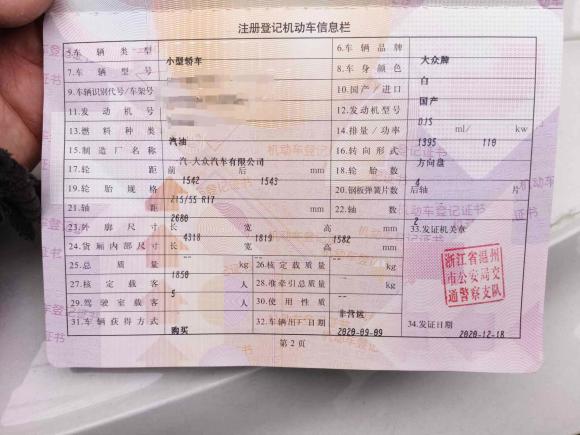 注册登记机动车信息栏
5.车辆类型 小型轿车 6.车辆品牌 大众牌
7.车辆型号 8.车身颜色 白
9.车辆识别代号/车架号 10.国产/进口 国产
11.发动机号 12.发动机型号 DJS
13.燃料种类 汽油 14.排量/功率 1395 ml/ 110 kw
15.制造厂名称 汽-大众汽车有限公司 16.转向形式 方向盘
17.轮距 前 1542 后 1543 mm 18.轮胎数 4
19.轮胎规格 215/55 R17 20.钢板弹簧片数 后轴 -- 片
21.轴距 2680 mm 22.轴数 2
23.外廓尺寸 长 4318 宽 1819 高 1582 mm 33.发证机关章
24.货厢内部尺寸 长 -- 宽 -- 高 -- mm
浙江省温州
市公安局交
通警察支队
25.总质量 1850 kg 26.核定载质量 -- kg
27.核定载客 5 人 28.准牵引总质量 -- kg
29.驾驶室载客 -- 人 30.使用性质 非营运
31.车辆获得方式 购买 32.车辆出厂日期 2020-09-09 34.发证日期 2020-12-18
第2页